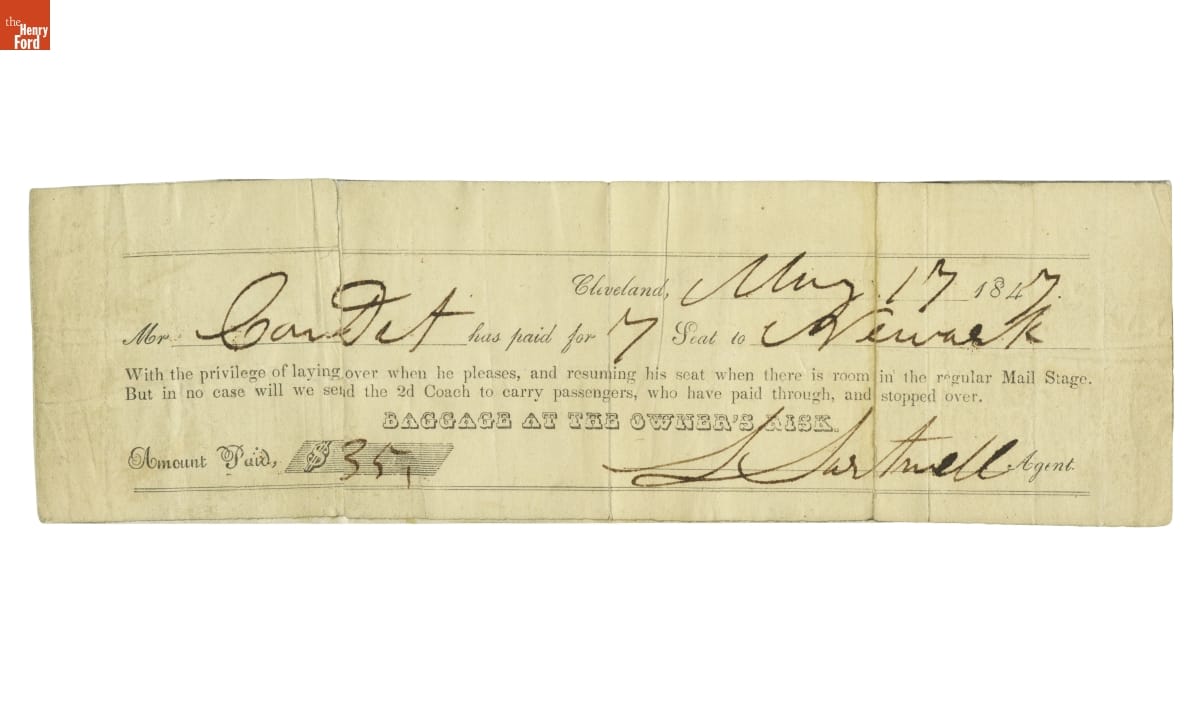 the
Henry
Ford
Cleveland, May 17 1847.
Mr Condit has paid for 7 Seat to Newark
With the privilege of laying over when he pleases, and resuming his seat when there is room in the regular Mail Stage.
But in no case will we send the 2d Coach to carry passengers, who have paid through, and stopped over.
BAGGAGE AT THE OWNER'S RISK.
Amount Paid, $ 35, S Sartwell Agent.